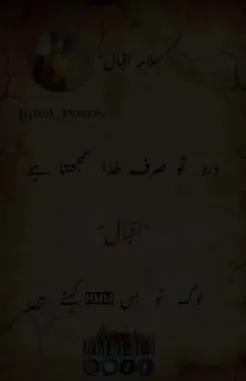 "علامہ اقبال"
Iqbal_Poetry
درد تو صرف خدا سمجھتا ہے
"اقبال"
لوگ تو بس HMM کہتے ہیں